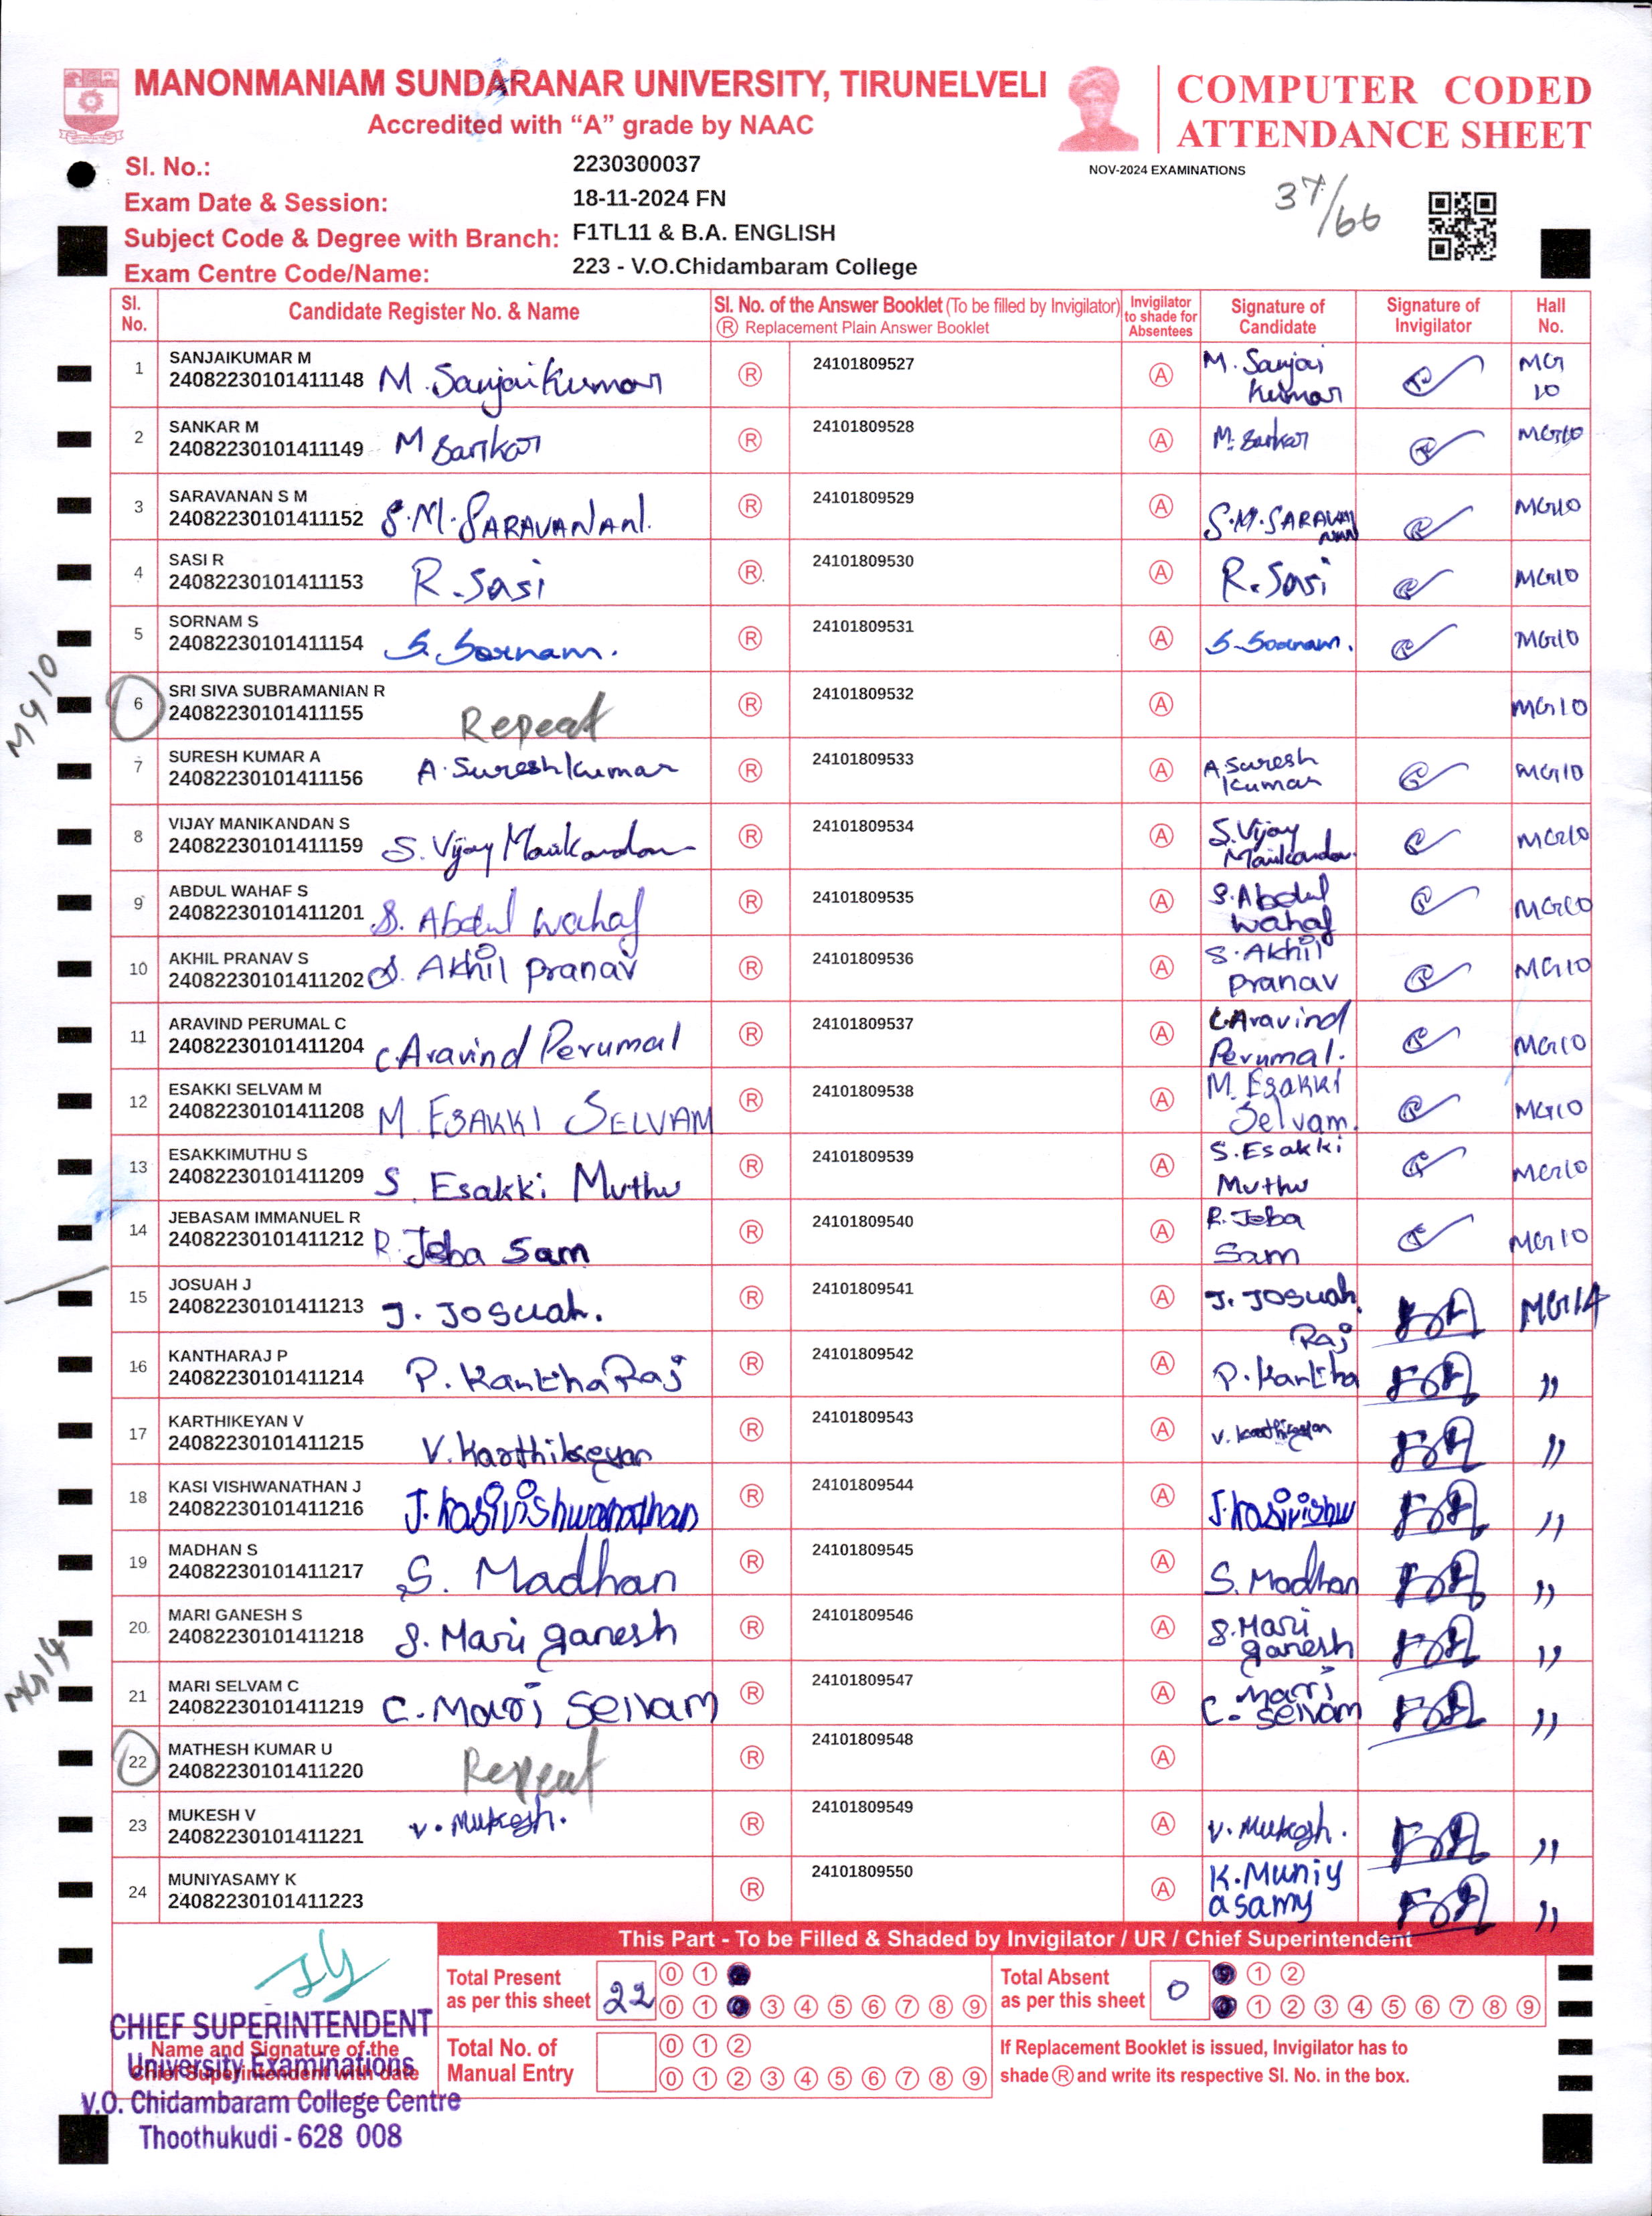 MANONMANIAM SUNDARANAR UNIVERSITY, TIRUNELVELI
Accredited with “A” grade by NAAC
COMPUTER CODED
ATTENDANCE SHEET
NOV-2024 EXAMINATIONS
37/66
Sl. No.: 2230300037
Exam Date & Session: 18-11-2024 FN
Subject Code & Degree with Branch: F1TL11 & B.A. ENGLISH
Exam Centre Code/Name: 223 - V.O.Chidambaram College
Sl. No. Candidate Register No. & Name Sl. No. of the Answer Booklet (To be filled by Invigilator) Ⓡ Replacement Plain Answer Booklet Invigilator to shade for Absentees Signature of Candidate Signature of Invigilator Hall No.
1 SANJAIKUMAR M 24101809527 M. Sanjai MG
24082230101411148 M. Sanjai Kumar Ⓡ Ⓐ Kumar 10
2 SANKAR M 24101809528
24082230101411149 M Sankar Ⓡ Ⓐ M. Sankar MG10
3 SARAVANAN S M 24101809529
24082230101411152 S.M. SARAVANAN. Ⓡ Ⓐ S.M. SARAVANAN MG10
4 SASI R 24101809530
24082230101411153 R. Sasi Ⓡ Ⓐ R. Sasi MG10
5 SORNAM S 24101809531
24082230101411154 S. Sornam. Ⓡ Ⓐ S. Sornam. MG10
MG 10
6 SRI SIVA SUBRAMANIAN R 24101809532
24082230101411155 Repeat Ⓡ Ⓐ MG10
7 SURESH KUMAR A 24101809533 A. Suresh
24082230101411156 A. Suresh Kumar Ⓡ Ⓐ Kumar MG10
8 VIJAY MANIKANDAN S 24101809534 S. Vijay
24082230101411159 S. Vijay Manikandan Ⓡ Ⓐ Manikandan MG10
9 ABDUL WAHAF S 24101809535 S. Abdul
24082230101411201 S. Abdul Wahaf Ⓡ Ⓐ Wahaf MG10
10 AKHIL PRANAV S 24101809536 S. Akhil
24082230101411202 S. Akhil Pranav Ⓡ Ⓐ Pranav MG10
11 ARAVIND PERUMAL C 24101809537 C. Aravind
24082230101411204 C. Aravind Perumal Ⓡ Ⓐ Perumal. MG10
12 ESAKKI SELVAM M 24101809538 M. Esakki
24082230101411208 M. ESAKKI SELVAM Ⓡ Ⓐ Selvam. MG10
13 ESAKKIMUTHU S 24101809539 S. Esakki
24082230101411209 S. Esakki Muthu Ⓡ Ⓐ Muthu MG10
14 JEBASAM IMMANUEL R 24101809540 R. Jeba
24082230101411212 R. Jeba Sam Ⓡ Ⓐ Sam MG10
15 JOSUAH J 24101809541
24082230101411213 J. Josuah. Ⓡ Ⓐ J. Josuah. MG14
16 KANTHARAJ P 24101809542 Raj
24082230101411214 P. KanthaRaj Ⓡ Ⓐ P. Kantha ,,
17 KARTHIKEYAN V 24101809543
24082230101411215 V. Karthikeyan Ⓡ Ⓐ V. Karthikeyan ,,
18 KASI VISHWANATHAN J 24101809544
24082230101411216 J. Kasivishwanathan Ⓡ Ⓐ J. Kasivishw ,,
19 MADHAN S 24101809545
24082230101411217 S. Madhan Ⓡ Ⓐ S. Madhan ,,
20 MARI GANESH S 24101809546 S. Mari
24082230101411218 S. Mari ganesh Ⓡ Ⓐ ganesh ,,
MG14
21 MARI SELVAM C 24101809547 Mari
24082230101411219 C. Mari Selvam Ⓡ Ⓐ C. Selvam ,,
22 MATHESH KUMAR U 24101809548
24082230101411220 Repeat Ⓡ Ⓐ
23 MUKESH V 24101809549
24082230101411221 V. Mukesh. Ⓡ Ⓐ V. Mukesh. ,,
24 MUNIYASAMY K 24101809550 K. Muniy
24082230101411223 Ⓡ Ⓐ asamy ,,
This Part - To be Filled & Shaded by Invigilator / UR / Chief Superintendent
Total Present as per this sheet 22 0 1
0 1 3 4 5 6 7 8 9
Total Absent as per this sheet 0 1 2
1 2 3 4 5 6 7 8 9
Total No. of Manual Entry 0 1 2
0 1 2 3 4 5 6 7 8 9
If Replacement Booklet is issued, Invigilator has to
shade Ⓡ and write its respective Sl. No. in the box.
Name and Signature of the
Chief Superintendent with date
CHIEF SUPERINTENDENT
University Examinations
V.O. Chidambaram College Centre
Thoothukudi - 628 008